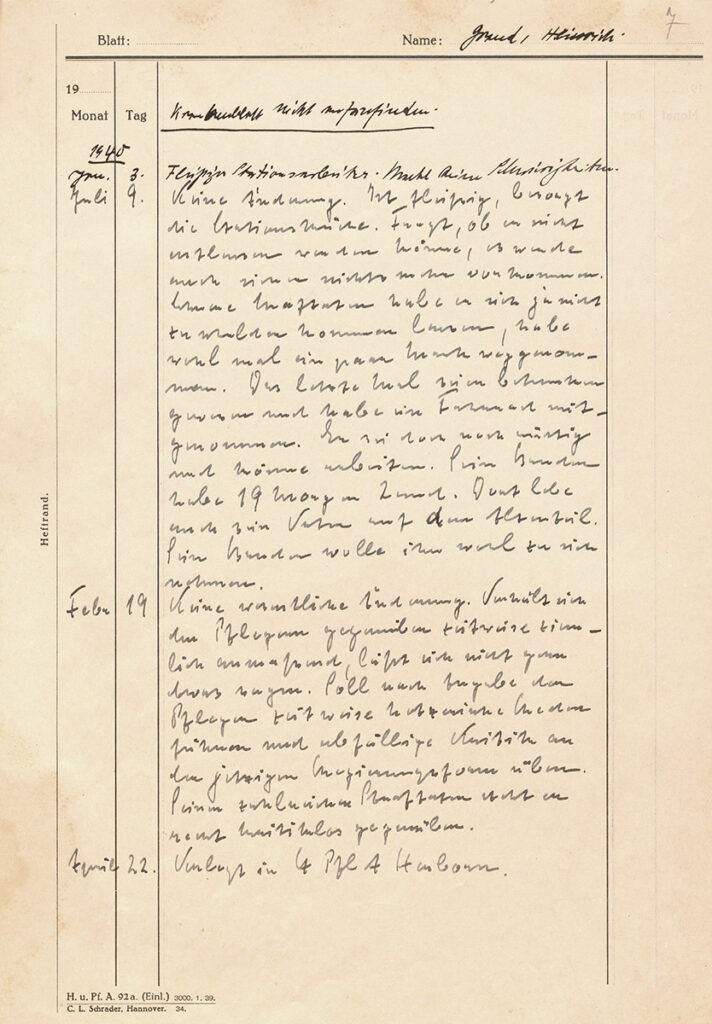 7
Blatt: Name: Grund, Heinrich.
19
Monat Tag Krankenblatt nicht aufzufinden.
1940
Jan. 3. Fleissiger Stationsarbeiter. Macht keine Schwierigkeiten.
Juli 9. Keine Änderung. Ist fleißig, besorgt
die Stationsküche. Fragt, ob er nicht
entlassen werden könne, es werde
auch sicher nichts mehr vorkommen.
Schwere Straftaten habe er sich ja nicht
zu schulden kommen lassen, habe
wohl mal ein paar Mark weggenom-
men. Das letzte Mal sei er betrunken
gewesen und habe ein Fahrrad mit-
genommen. Er sei doch noch rüstig
und könne arbeiten. Sein Bruder
habe 19 Morgen Land. Dort lebe
auch sein Vater auf dem Altenteil.
Sein Bruder wolle ihn wohl zu sich
nehmen.
Febr 19 Keine wesentliche Änderung. Verhält sich
den Pflegern gegenüber zeitweise ziem-
lich anmaßend, läßt sich nicht gern
etwas sagen. Soll nach Angabe der
Pfleger zeitweise hetzerische Reden
führen und abfällige Kritik an
der jetzigen Regierungsform üben.
Seinen zahlreichen Straftaten steht er
recht kritiklos gegenüber.
April 22. Verlegt in Pfl A Herborn.
Heftrand.
H. u. Pf. A. 92a. (Einl.) 3000. 1. 39.
C. L. Schrader, Hannover. 34.